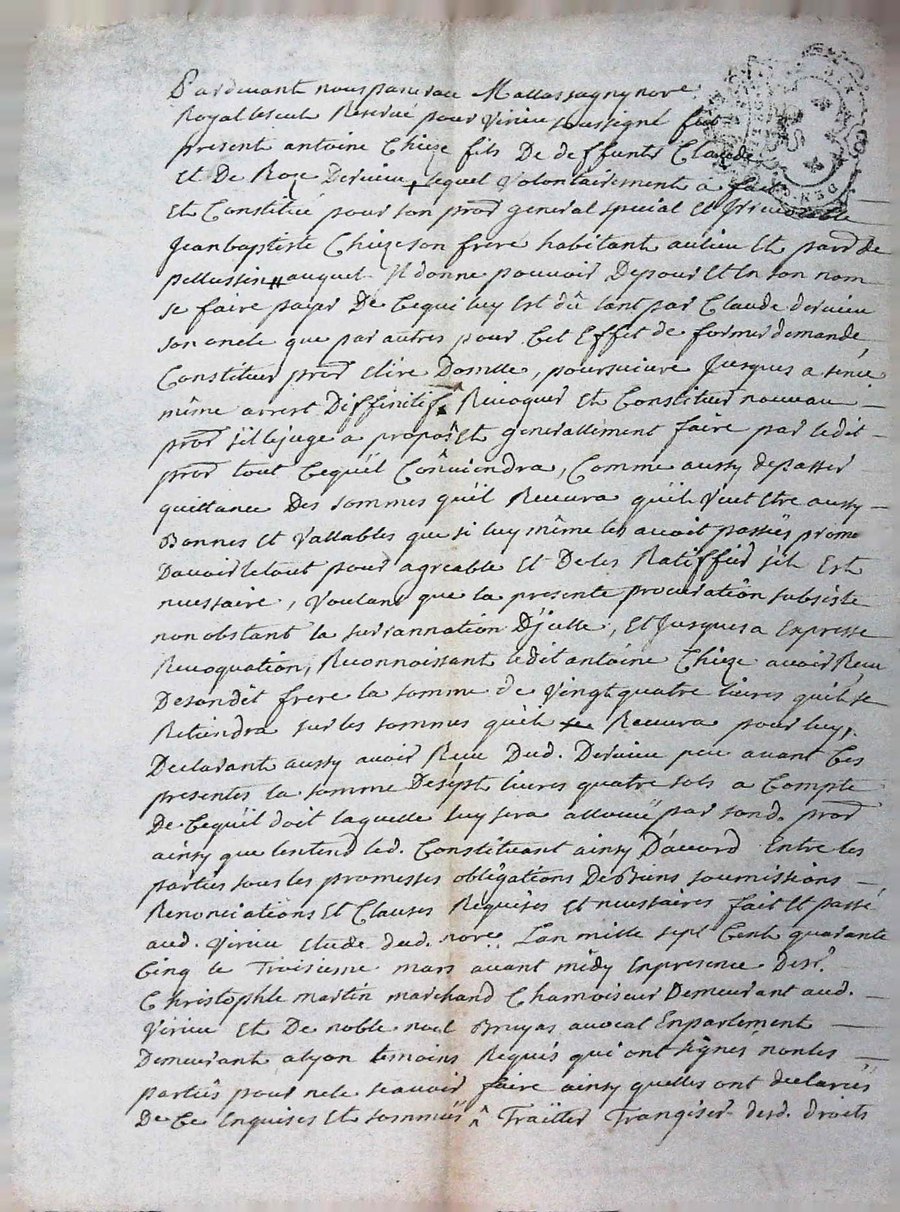 Pardevant nous pancrace Mallassagny no.re
Royal le seul Reservé pour virieu soussigné fut
present antoine Chieze fils De deffunts Claude
Et De Roze Dervieu, lequel volontairement a fait
Et Constitué pour son pro.r general special Et Irrevocable
Jean baptiste Chieze son frere habitant au lieu Et par.e de
pellussin auquel Il donne pouvoir De pour Et En son nom
se faire payer De Cequi luy Est dû tant par Claude dervieu
son oncle que par autres pour Cet Effet de former demande,
Constituer pro.r Elire Domille, poursuivre Jusques a sence
même arrest Diffinitif, Revoquer Et Constituer nouveau
pro.r s'il le juge a propos Et generallement faire par ledit
pro.r tout Cequ'il Conviendra, Comme aussy de passer
quittance Des sommes qu'il Recevra qu'il veut Etre aussy
Bonnes Et Vallables que si luy même les avoit passées prome
D'avoir le tout pour agreable Et De les Ratiffier s'il Est
necessaire, Voulant que la presente procuration subsiste
nonobstant la surannation D'jcelle, Et Jusques a Expresse
Revoquation, Reconnoissant ledit antoine Chieze avoir Reçu
De son dit frere la somme de vingt quatre livres qu'il se
Retiendra sur les sommes qu'il Recevra pour luy,
Declarant aussy avoir Reçu Dud. Dervieu peu avant Ces
presentes la somme De sept livres quatre sols a Compte
De Cequ'il doit laquelle luy sera allouée par sond. pro.r
ainsy que l'entend led. Constituant ainsy D'accord Entre les
parties sous les promesses obligations De Biens soumissions
Renonciations Et Clauses Requises Et necessaires fait Et passé
aud. Virieu Etude dud. no.re L'an mille sept Cent quarante
Cinq le Troisieme mars avant midy En presence De s.r
Christophle martin marchand Chamoiseur Demeurant aud.
Virieu Et De noble noel Bruyas avocat En parlement
Demeurant a lyon temoins Requis qui ont signés non les
parties pour ne le sçavoir faire ainsy quelles ont declarées
De Ce Enquises Et sommées ^ Traitter Transiger desd. droits